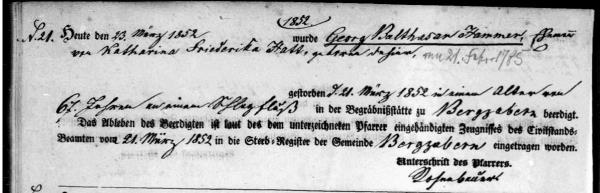 1852
N. 21. Heute den 23. März 1852 wurde Georg Balthasar Hammer, Ehemann
von Katharina Friederika Fatt, geboren dahier, am 21. Febr. 1785
gestorben d. 21. März 1852 in einem Alter von
67. Jahren an einem Schlagfluß in der Begräbnißstätte zu Bergzabern beerdigt.
Das Ableben des Beerdigten ist laut des dem unterzeichneten Pfarrer eingehändigten Zeugnisses des Civilstands-
Beamten vom 21. März 1852 in die Sterb-Register der Gemeinde Bergzabern eingetragen worden.
Unterschrift des Pfarrers.